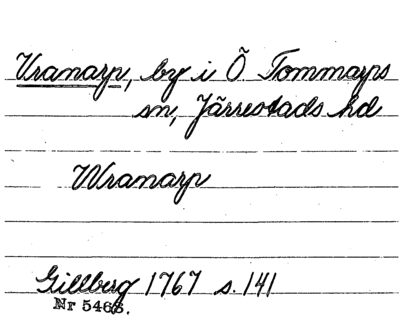 Vranarp, by i Ö. Tommarps
sn, Järrestads hd
Wranarp
Gillberg 1767 s. 141
Nr 5468.